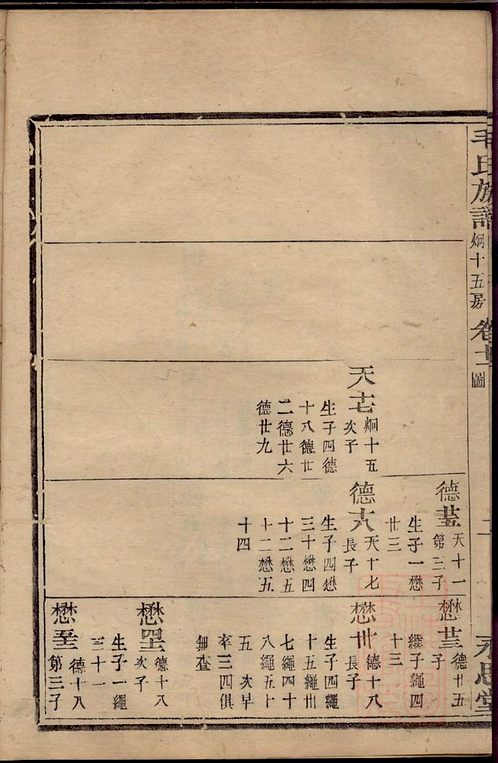 毛氏族譜 炯十五房 卷十一 圖 二 永思堂
天十七
炯十五
次子
生子四德
十八德廿
二德廿六
德廿九
德廿五
天十一
第三子
生子一懋
廿三
德十八
天十七
長子
生子四懋
三十懋四
十二懋五
十二懋五
十四
懋廿三
德廿五
子
繼子繩四
十三
懋卅
德十八
長子
生子四繩
十五繩卅
七繩四十
八繩五十
五 次早
卒三四俱
細查
懋四十二
德十八
次子
生子一繩
三十一
懋五十二
德十八
第三子